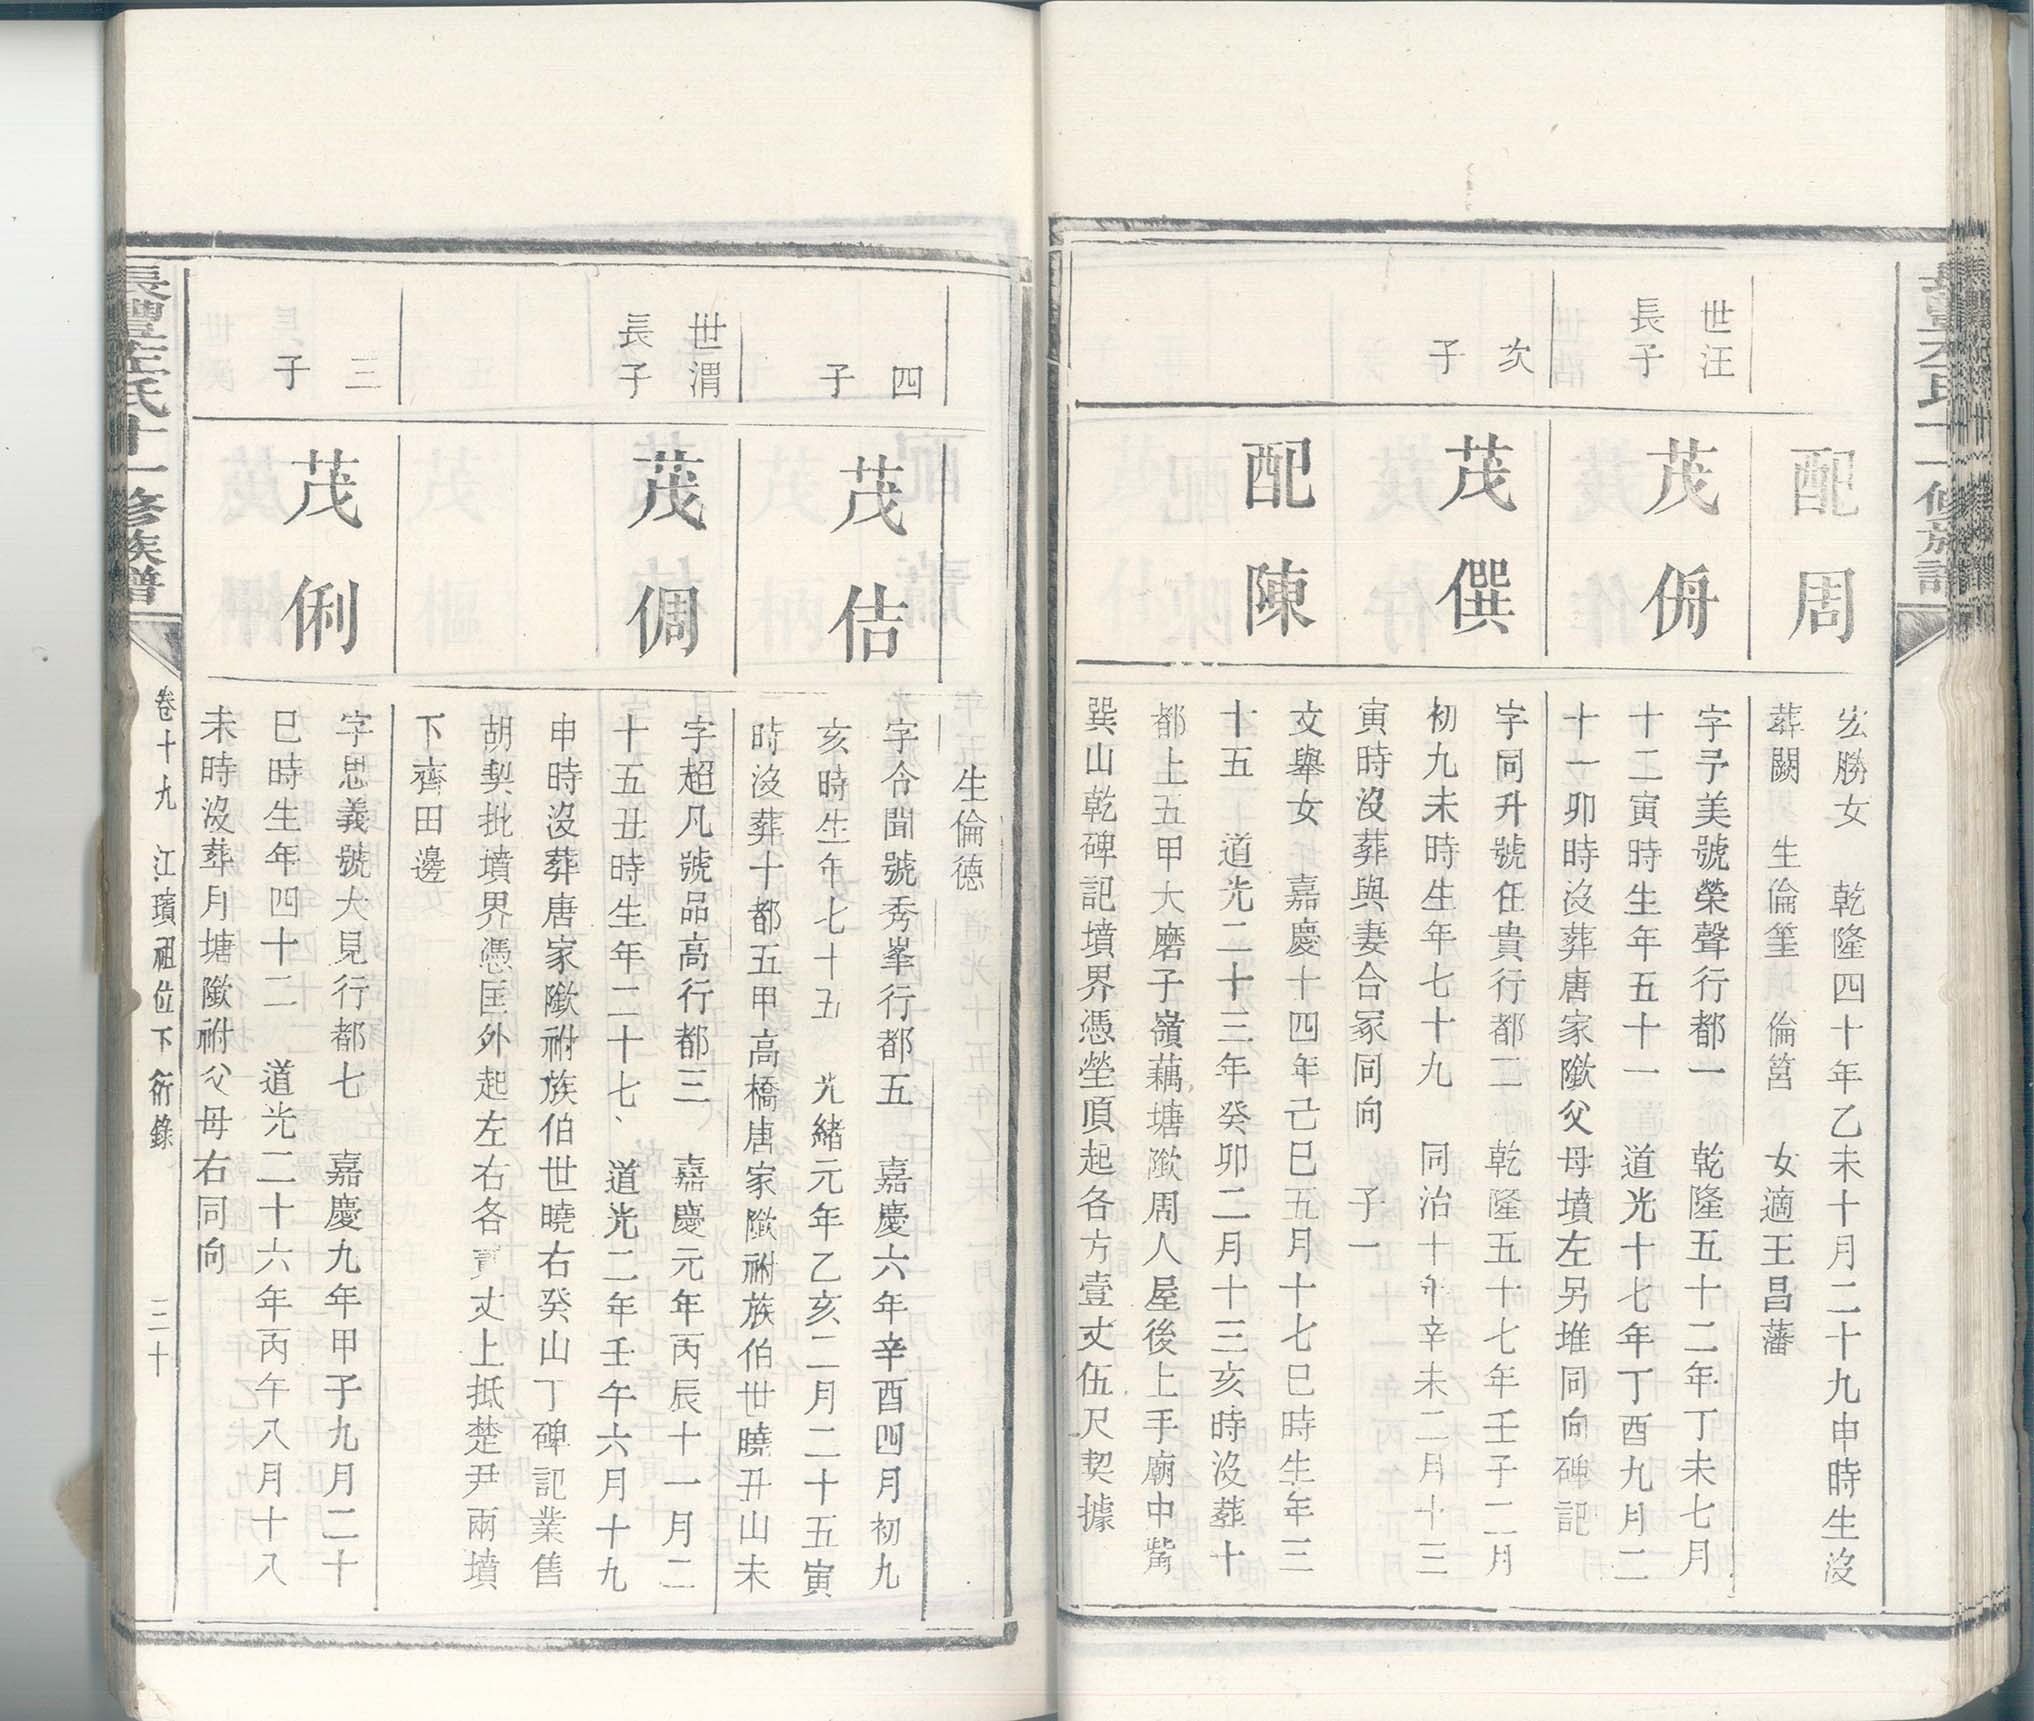 配周
宏勝女　乾隆四十年乙未十月二十九申時生沒
葬闕　生倫筀　倫筥　女適王昌藩
世汪
長子
茂侜
字予美號榮聲行都一　乾隆五十二年丁未七月
十二寅時生年五十一　道光十七年丁酉九月二
十一卯時沒葬唐家隞父母墳左另堆同向碑記
次
子
茂僎
字同升號任貴行都二　乾隆五十七年壬子二月
初九未時生年七十九　同治十年辛未二月十三
寅時沒葬與妻合冢同向　子一
配陳
文舉女　嘉慶十四年己巳五月十七巳時生年三
十五　道光二十三年癸卯二月十三亥時沒葬十
都上五甲大磨子嶺藕塘隞周人屋後上手廟中觜
巽山乾碑記墳界憑塋頂起各方壹丈伍尺契據
生倫德
四
子
茂佶
字令聞號秀峯行都五　嘉慶六年辛酉四月初九
亥時生年七十五　光緒元年乙亥二月二十五寅
時沒葬十都五甲高橋唐家隞祔族伯世曉丑山未
世渭
長子
茂倜
字超凡號品高行都三　嘉慶元年丙辰十一月二
十五丑時生年二十七　道光二年壬午六月十九
申時沒葬唐家隞祔族伯世曉右癸山丁碑記業售
胡契批墳界憑匡外起左右各壹丈上抵楚尹兩墳
下齊田邊
三
子
茂俐
字思義號大見行都七　嘉慶九年甲子九月二十
巳時生年四十二　道光二十六年丙午八月十八
未時沒葬月塘隞祔父母右同向
長豐左氏十一修族譜　卷十九　江璸祖位下衍錄　三十